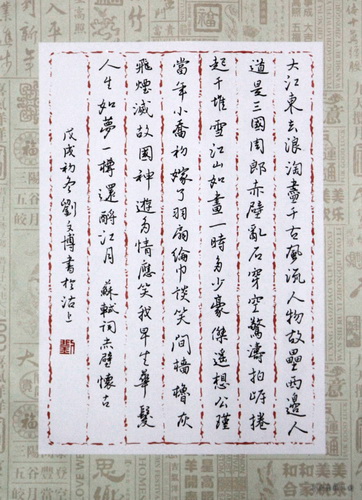 大江東去浪淘盡千古風流人物故壘西邊人
道是三國周郎赤壁亂石穿空驚濤拍岸捲
起千堆雪江山如畫一時多少豪傑遙想公瑾
當年小喬初嫁了羽扇綸巾談笑間檣櫓灰
飛煙滅故國神遊多情應笑我早生華髮
人生如夢一樽還酹江月 蘇軾詞赤壁懷古
戊戌初冬劉文博書於沽上